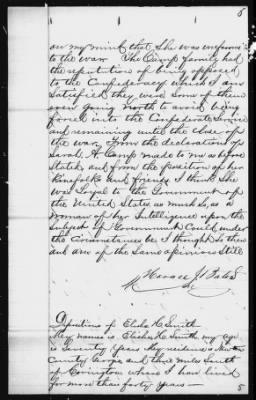 5
on my mind that she was unfriendly
to the war. The Camp family had
the reputation of being opposed
to the Confederacy which I am
satisfied they were some of them
even going north to avoid being
forced into the Confederate Service
and remaining until the close of
the war. From the declarations of
Sarah A. Camp made to me as before
stated and from the position of her
Kinsfolks and friends I think she
was Loyal to the Government of
the United States as much so, as a
woman of her Intelligence upon the
Subject of Government could under
the circumstances be I thought so then
and am of the Same opinion Still
Horace J. Bates
Deposition of Elisha C. Smith
My name is Elisha C. Smith, my age
is Seventy Years My residence is Newton
County Georgia and three miles South
of Covington where I have lived
for more than forty years —
5